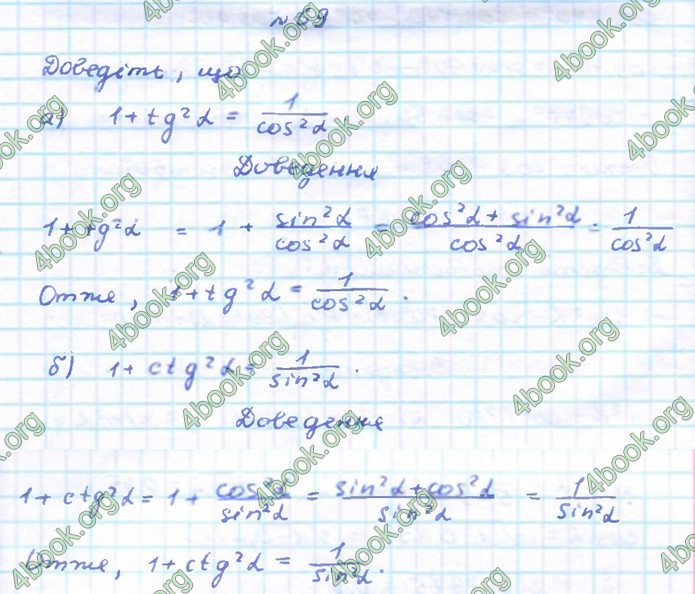 Доведіть, що
а) 1 + tg²α = 1/cos²α
Доведення
1 + tg²α = 1 + sin²α/cos²α = (cos²α + sin²α)/cos²α = 1/cos²α
Отже, 1 + tg²α = 1/cos²α.
б) 1 + ctg²α = 1/sin²α.
Доведення
1 + ctg²α = 1 + cos²α/sin²α = (sin²α + cos²α)/sin²α = 1/sin²α
Отже, 1 + ctg²α = 1/sin²α.
4book.org